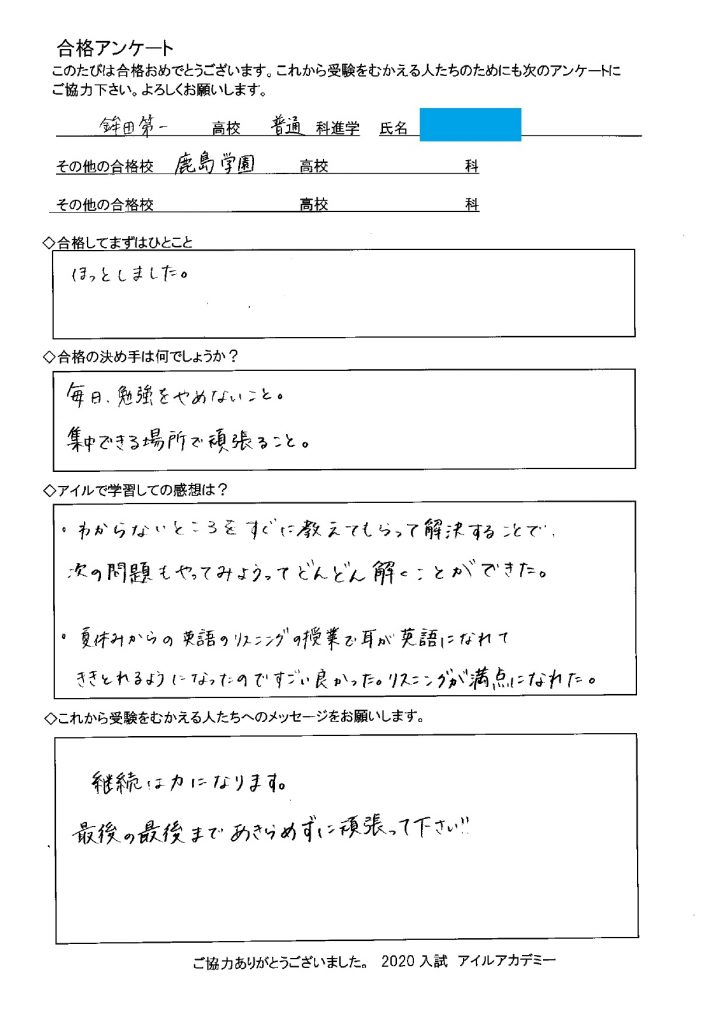 合格アンケート
このたびは合格おめでとうございます。これから受験をむかえる人たちのためにも次のアンケートに
ご協力下さい。よろしくお願いします。
鉾田第一 高校 普通 科進学 氏名
その他の合格校 鹿島学園 高校 科
その他の合格校 高校 科
◇合格してまずはひとこと
ほっとしました。
◇合格の決め手は何でしょうか？
毎日、勉強をやめないこと。
集中できる場所で頑張ること。
◇アイルで学習しての感想は？
・わからないところをすぐに教えてもらって解決することで、
次の問題もやってみようってどんどん解くことができた。
・夏休みからの英語のリスニングの授業で耳が英語になれて
ききとれるようになったのですごい良かった。リスニングが満点になれた。
◇これから受験をむかえる人たちへのメッセージをお願いします。
継続は力になります。
最後の最後まであきらめずに頑張って下さい!!
ご協力ありがとうございました。 2020入試 アイルアカデミー